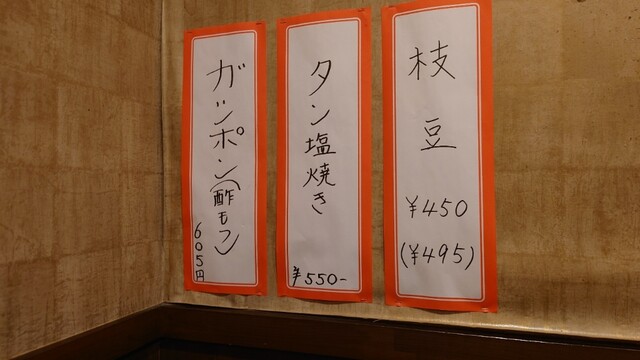 枝豆
¥450
(¥495)
タン塩焼き
¥550-
ガツポン(酢もつ)
605円